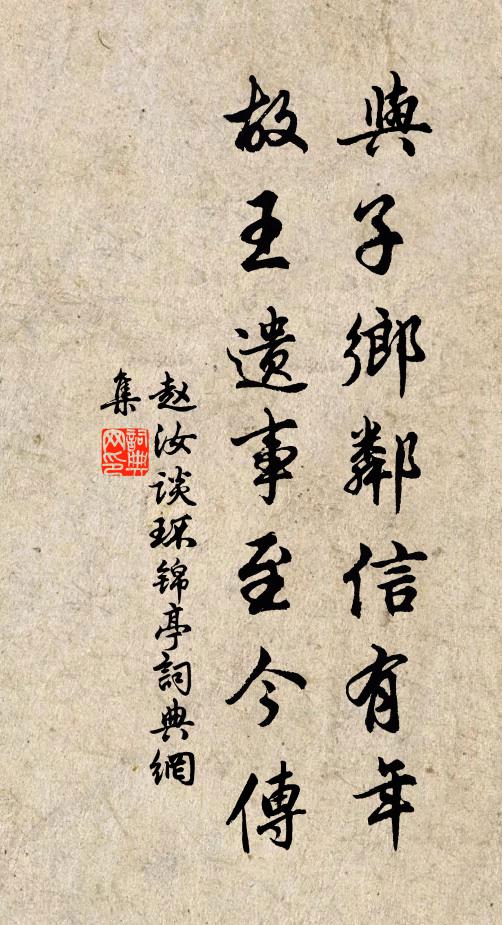 與子鄉鄰信有年
故王遺事至今傳
赵汝谈环锦亭詞典網
集
詞典
网印